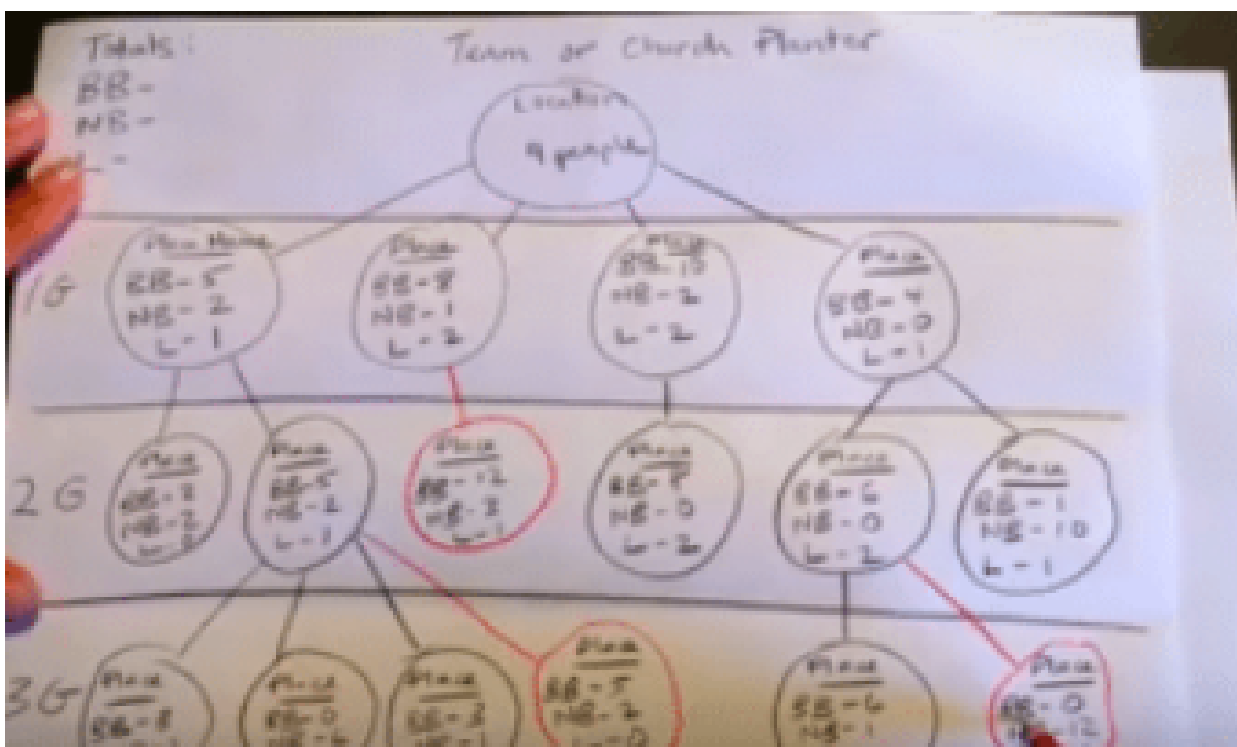 Totals:
BB-
NB-
L-
Team or Church Planter
Location
9 people
1G
Place Name
BB-5
NB-2
L-1
Place
BB-8
NB-1
L-2
Place
BB-10
NB-2
L-2
Place
BB-4
NB-0
L-1
2G
Place
NB-2
Place
BB-5
NB-2
L-1
Place
BB-12
L-1
Place
NB-0
L-2
Place
BB-6
NB-0
L-2
Place
BB-1
NB-10
L-1
3G
Place
BB-8
Place
BB-0
NB-6
Place
BB-3
NB-1
Place
BB-5
NB-2
L-0
Place
BB-6
NB-1
Place
BB-0